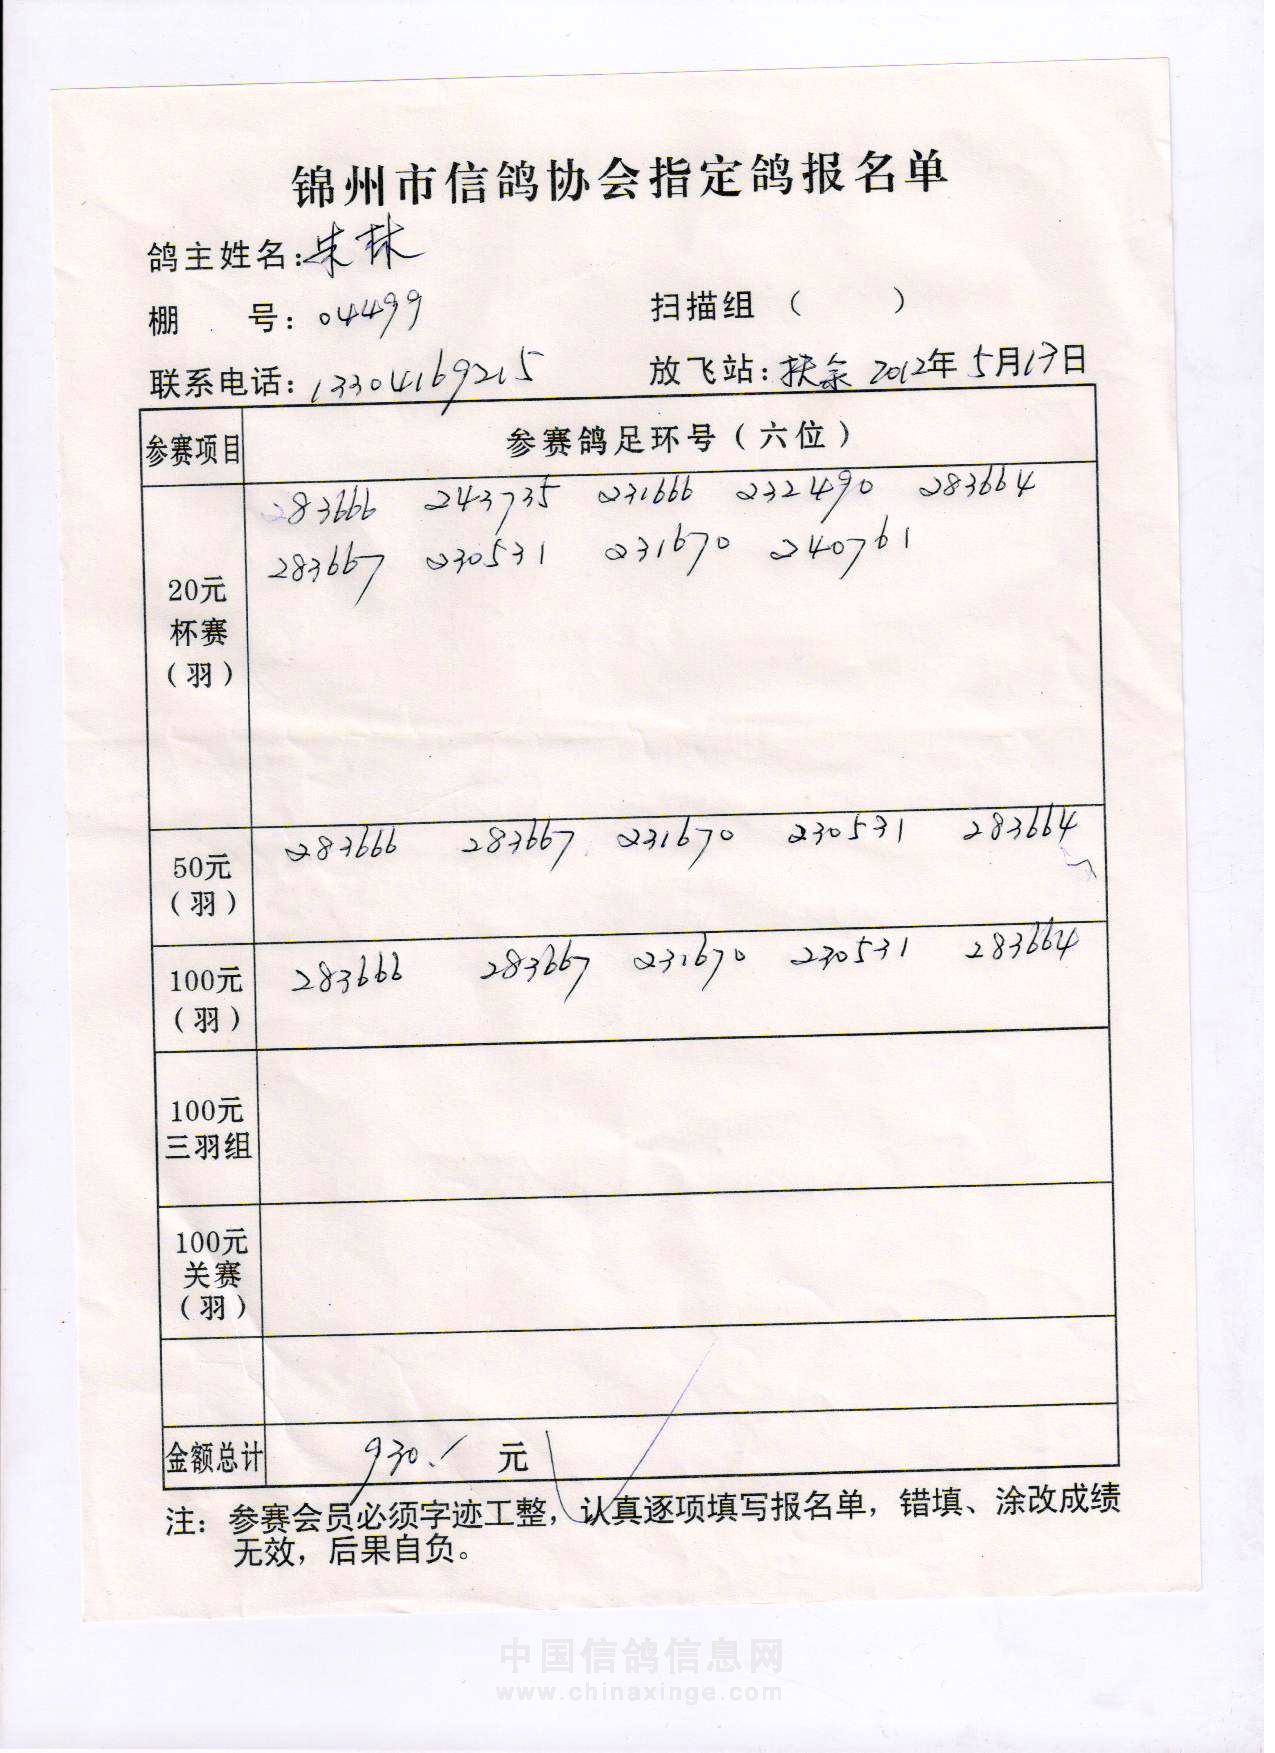 锦州市信鸽协会指定鸽报名单
鸽主姓名:朱林
棚 号: 04499 扫描组 ( )
联系电话: 13304169215 放飞站: 扶余 2012年 5月13日
参赛项目 参赛鸽足环号(六位)
20元
杯赛
(羽)
283666 243735 231666 232490 283664
283667 230531 231670 240761
50元
(羽)
283666 283667 231670 230531 283664
100元
(羽)
283666 283667 231670 230531 283664
100元
三羽组
100元
关赛
(羽)
金额总计 930. 元
注: 参赛会员必须字迹工整, 认真逐项填写报名单, 错填、涂改成绩
无效, 后果自负。
中国信鸽信息网
www.chinaxinge.com